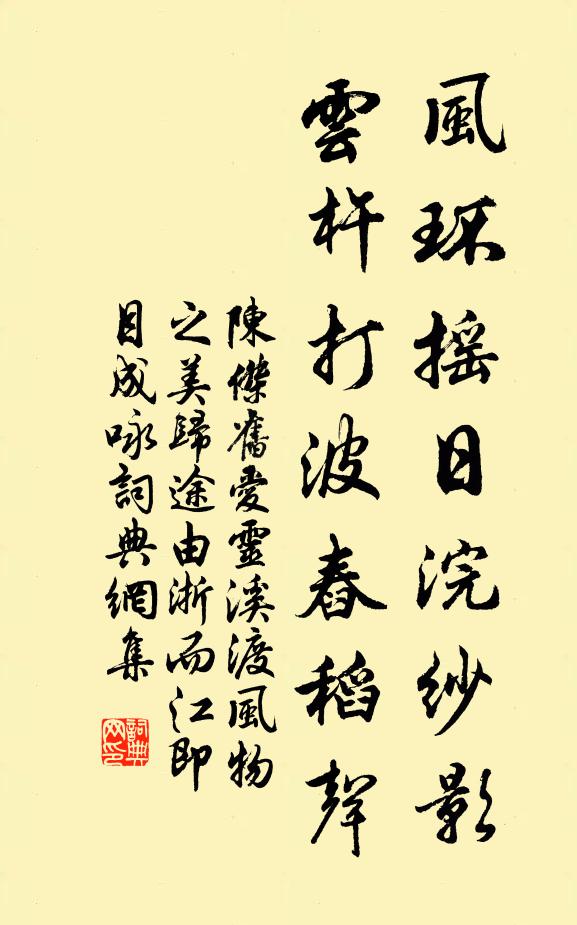 風环摇日浣紗影
雲杵打波舂稻聲
陳傑舊愛靈溪渡風物
之美歸途由浙而江即
目成咏詞典網集
詞典
网印